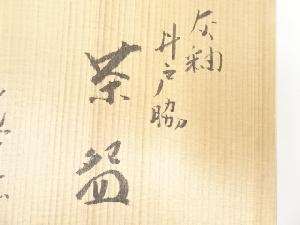 灰釉
井戸脇
茶盌